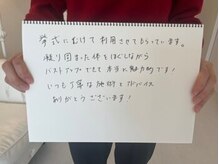 挙式にむけて利用させてもらっています。
凝り固まった体をほぐしながら
バストアップもできて本当に魅力的です!
いつも丁寧な施術とアドバイス
ありがとうございます!